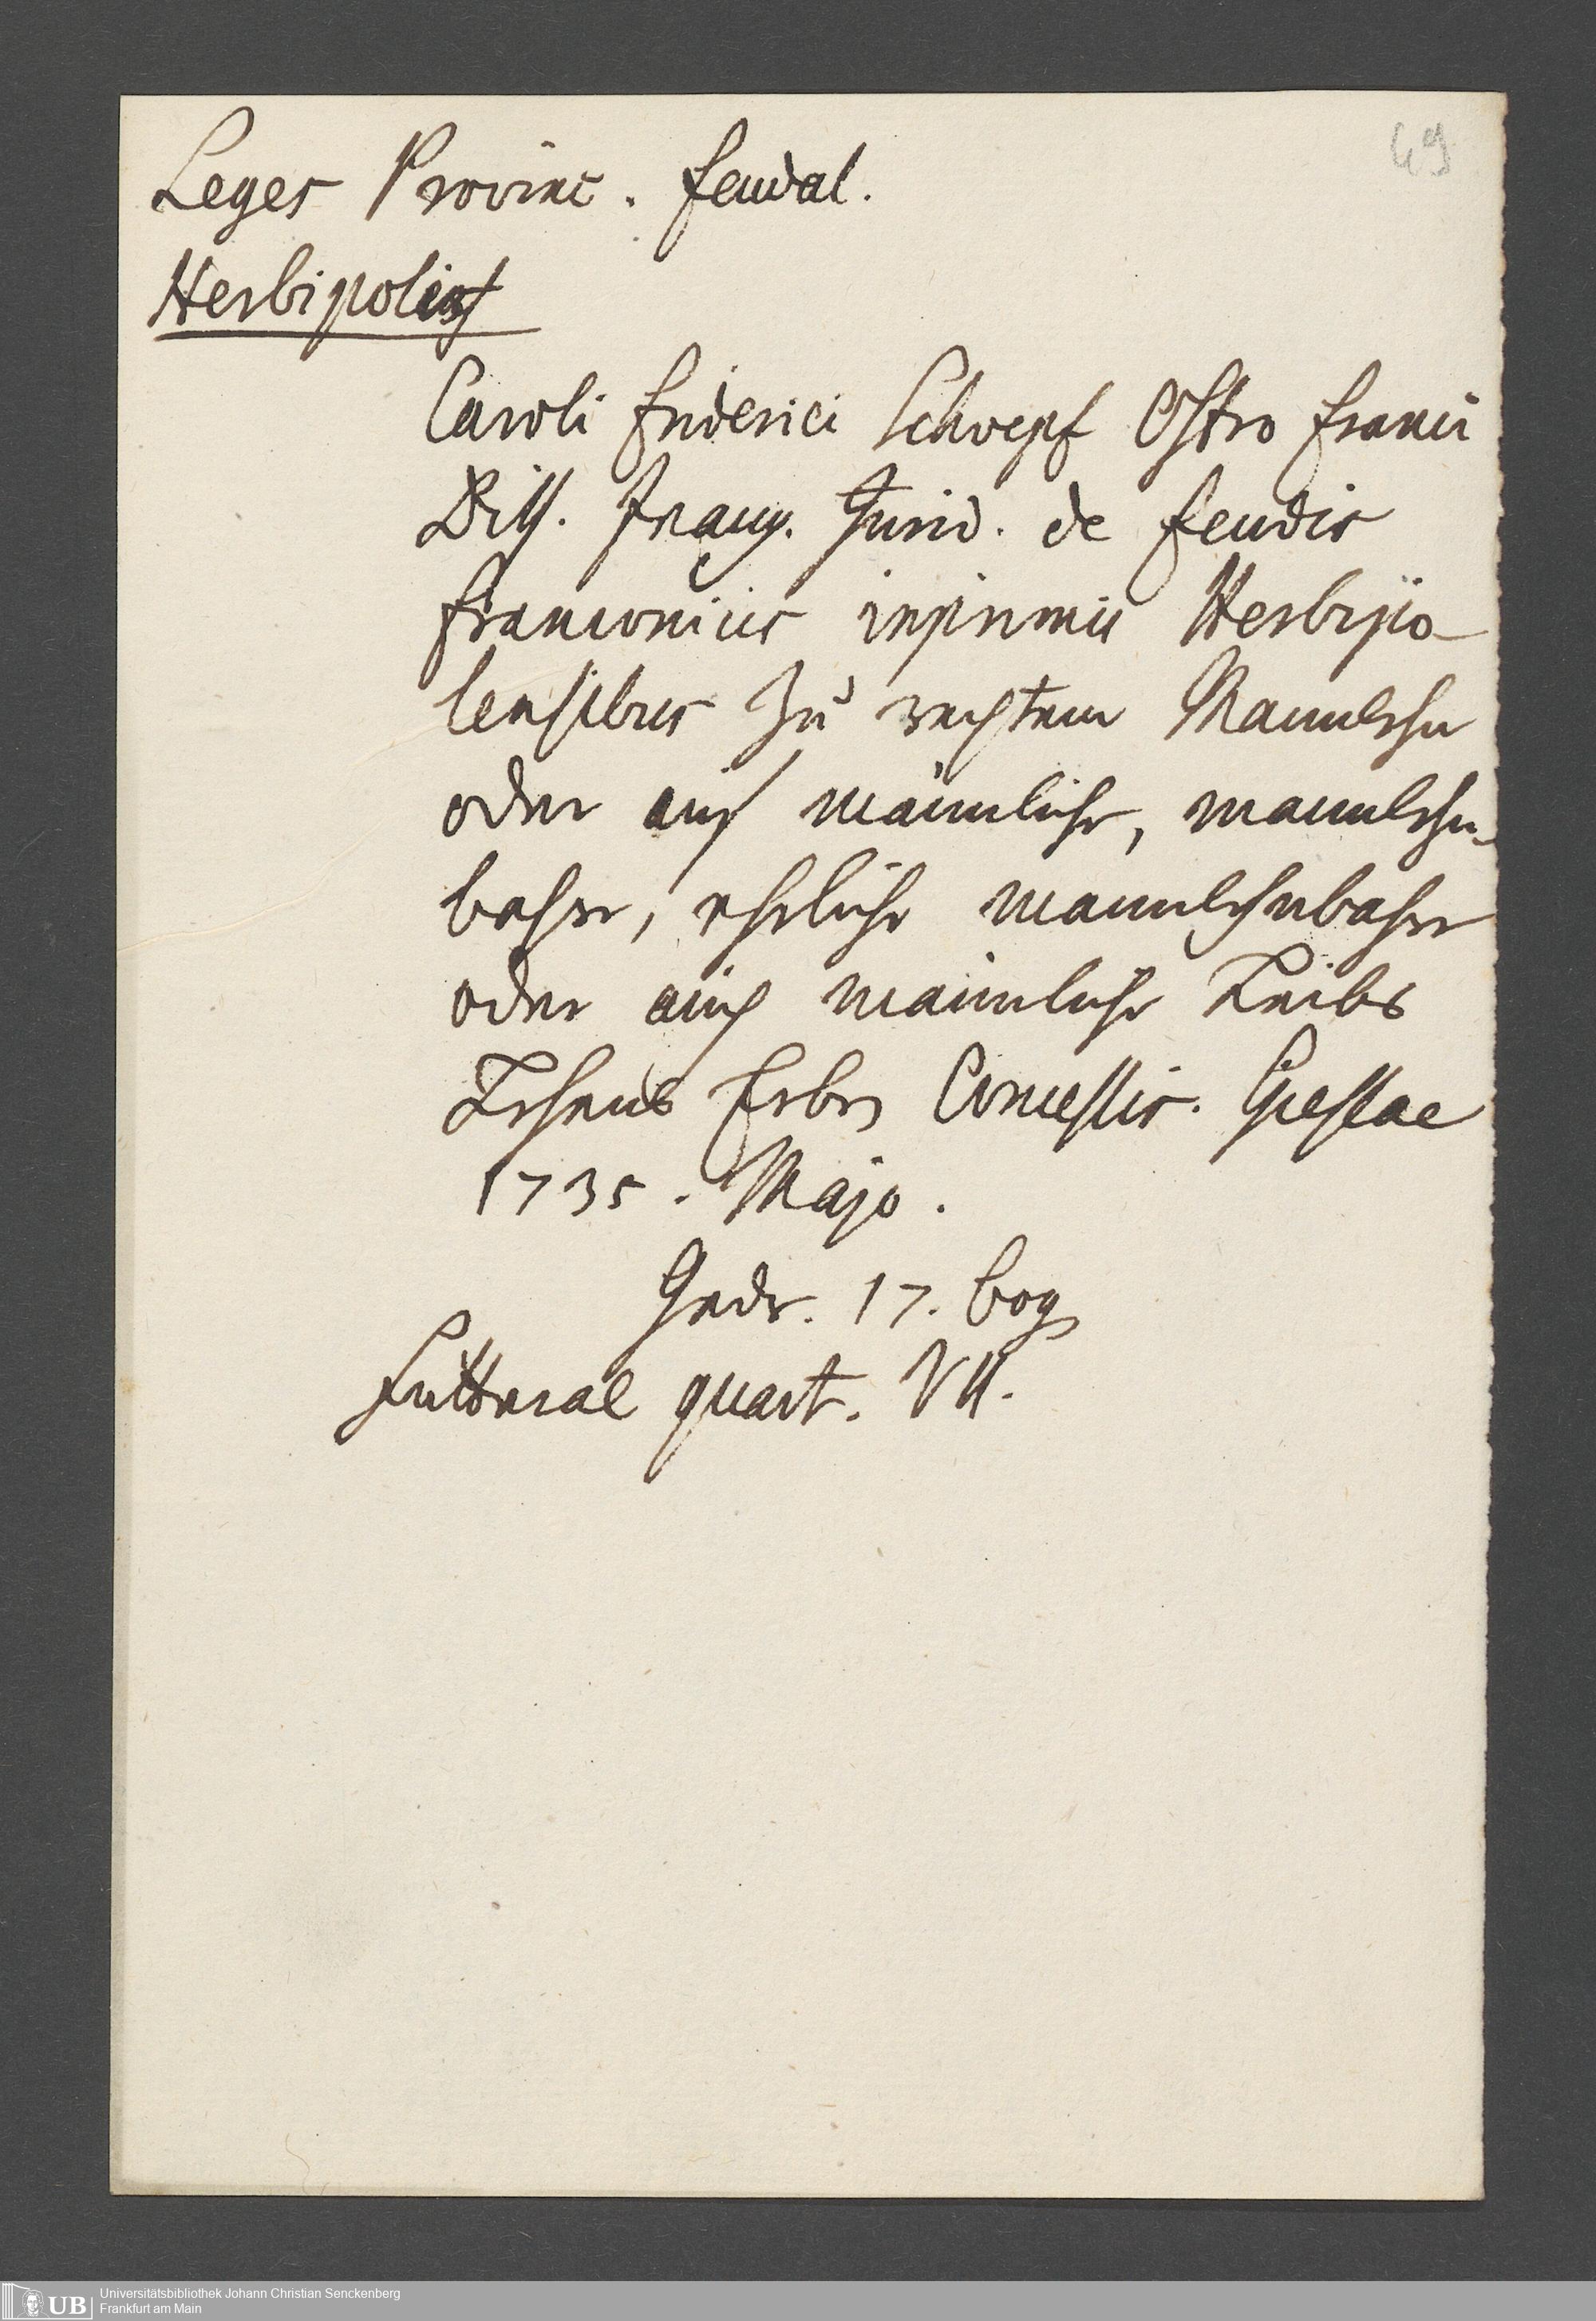 49
Leges Provinc. feudal.
Herbipolis
Caroli Friderici Schoepf Ostro Franci
Diss. Inaug. Jurid. de feudis
Franconicis inprimis Herbipo-
lensibus zu rechtem Mannlehn
oder auf männliche, mannlehn-
bahre, eheliche mannlehnbahre
oder auch männliche Leibs
Lehens Erben Concessis. Giessae
1735. Majo.
Gedr. 17. bog
Futteral quart. VII.
Universitätsbibliothek Johann Christian Senckenberg
Frankfurt am Main
UB